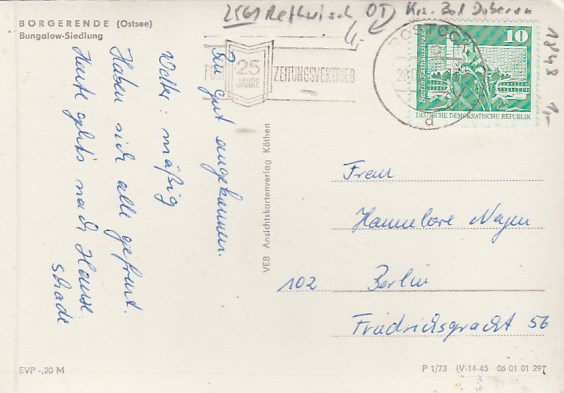 BÖRGERENDE (Ostsee)
Bungalow-Siedlung
2561 Rethwisch OT Krs. Bad Doberan
1848 1,-
25
JAHRE
ZEITUNGSVERTRIEB
ROSTOCK
d
10
DEUTSCHE DEMOKRATISCHE REPUBLIK
Bin gut angekommen.
Wetter: mäßig
Haben sich alle gefreut.
Heute geht's nach Hause.
Schade
VEB Ansichtskartenverlag Köthen
Frau
Hannelore
102 Berlin
Friedrichsgracht 56
EVP -,20 M
P 1/73 IV-14-45 06 01 01 297